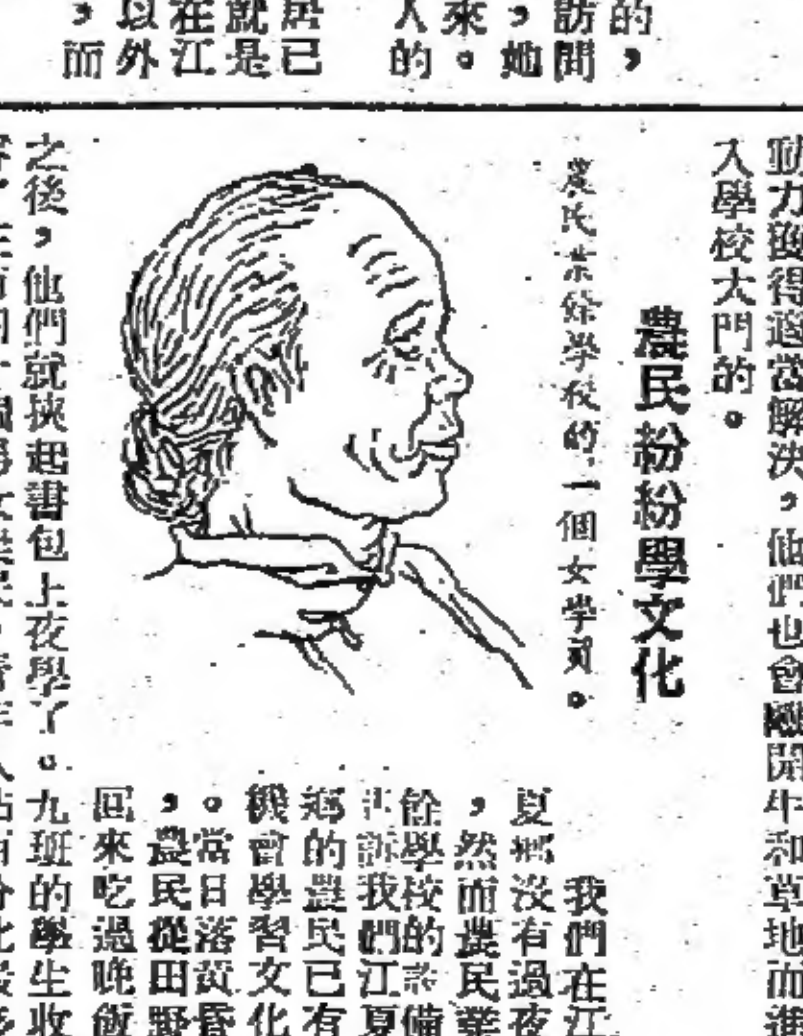 的，
訪問
，她
來。
人的
居已
就是
在江
以外
，而
動力後得適當解決，他們也會離開牛和草地而進
入學校大門的。
農民紛紛學文化
農民業餘學校的一個女學員。
我們在江
夏鄉沒有過夜
，然而農民業
餘學校的設備
訴我們江夏
鄉的農民已有
機會學習文化
。當日落黃昏
，農民從田野
回來吃過晚飯
之後，他們就挾起書包上夜學了。九班的學生收